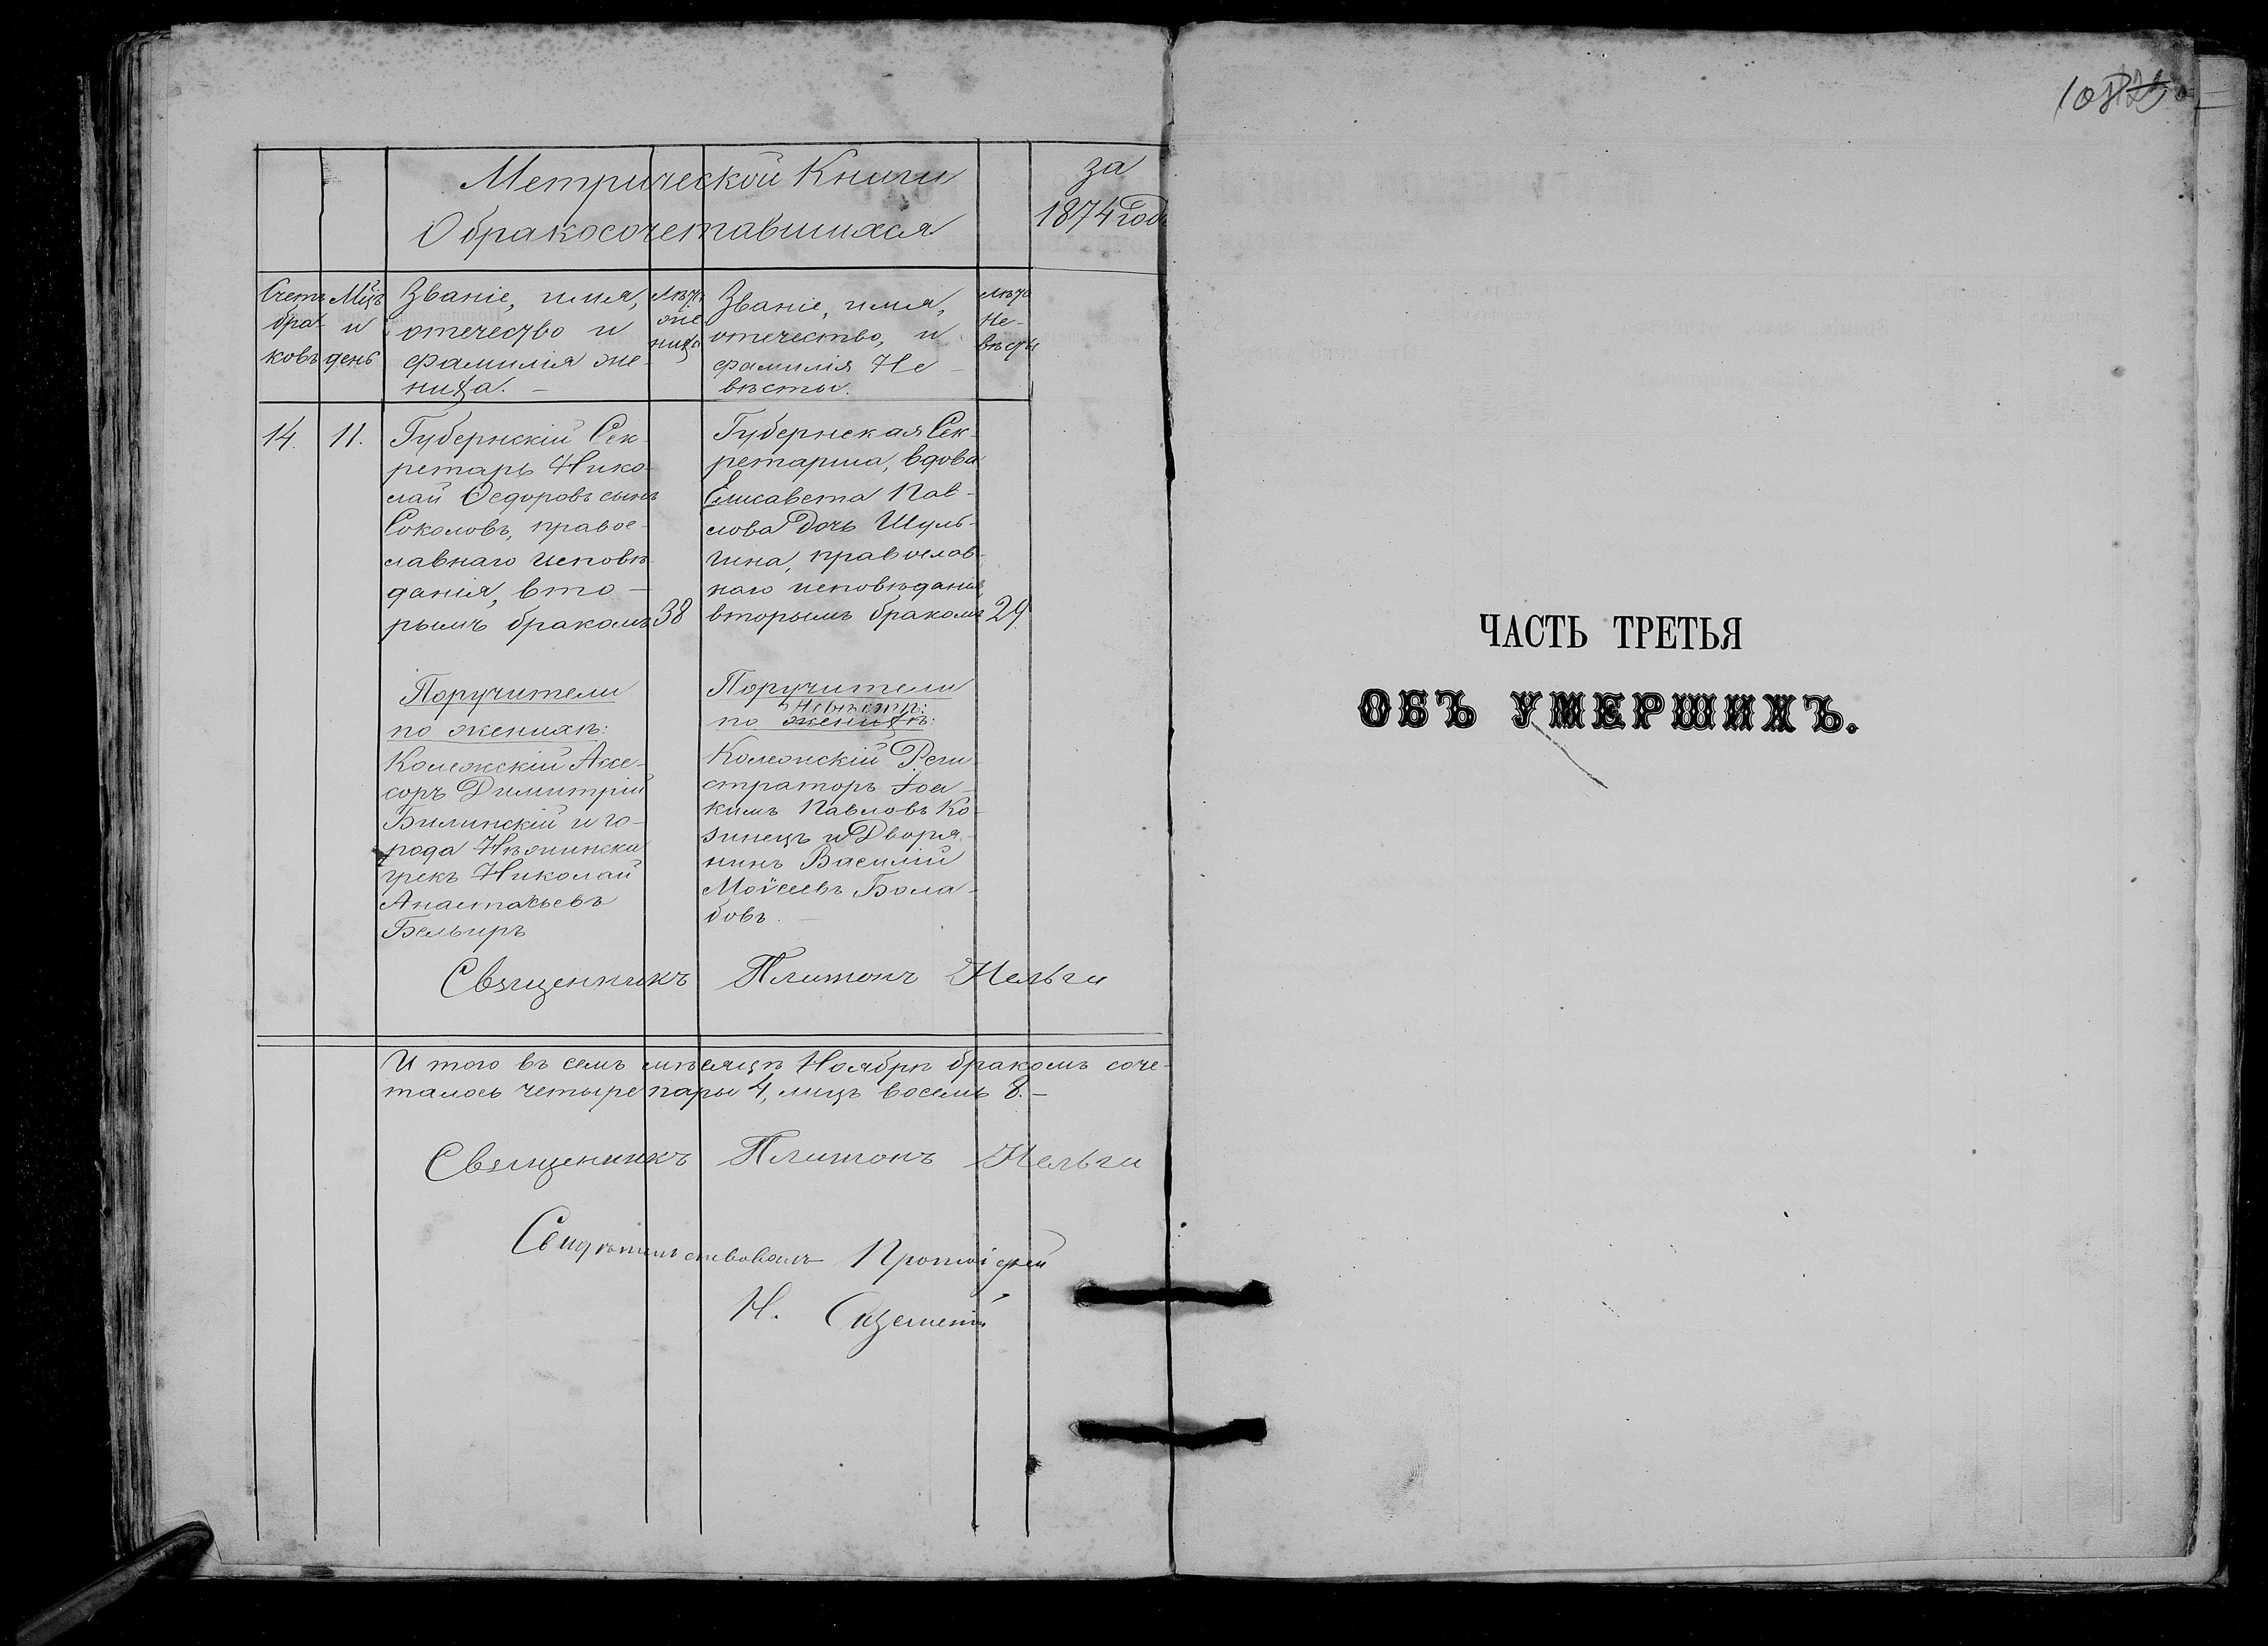 Метрической Книги
за
О бракосочетавшихся
1874 годъ
Счетъ
бра-
ковъ
Мцъ
и
день
Званіе, имя,
отечество и
фамилія же-
ниха. –
Лѣта
же
ниха
Званіе, имя,
отечество, и
фамилія Не-
вѣсты.
Лѣта
Не-
вѣсты
14.
11.
Губернскій Сек-
ретарь Нико-
лай Ѳедоровъ сынъ
Соколовъ, право-
славнаго исповѣ-
данія, вто-
рымъ бракомъ
38
Губернская Сек-
ретарша, вдова
Елисавета Пав-
лова дочь Шуль-
гина, православ-
наго исповѣданія,
вторымъ бракомъ
29.
Поручители
по женихѣ:
Колежскій Ассе-
соръ Димитрій
Билинскій и го-
рода Нѣжинска
грекъ Николай
Анастасьевъ
Бельиръ
Поручители
Невѣстѣ:
по женихѣ:
Колежскій Реги-
страторъ Іоа-
кимъ Павловъ Ко-
зинецъ и Дворя-
нинъ Василій
Моѵсеевъ Бола-
бовъ. –
Священникъ Платонъ Нельги
И того въ семъ мѣсяцѣ Ноябрѣ бракомъ соче-
талось четыре пары 4, лицъ восемь 8. –
Священникъ Платонъ Нельги
Свидѣтельствовалъ Протоіерей
Н.
108
ЧАСТЬ ТРЕТЬЯ
ОБЪ УМЕРШИХЪ.